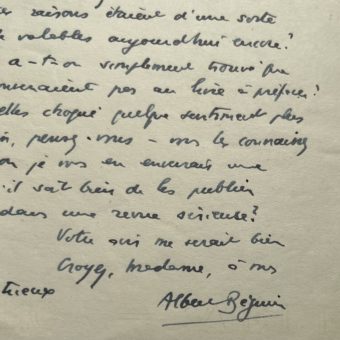 raisons étaient d'une sorte
valables aujourd'hui encore?
a-t-on simplement trouvé que
pas au livre à préfacer?
elles choqué quelque sentiment plus
pensez-vous - vous les connaissez
je vous en enverrais une
il soit bien de les publier
dans une revue sérieuse?
Votre avis me serait bien
Croyez, Madame, à mes
Albert Béguin